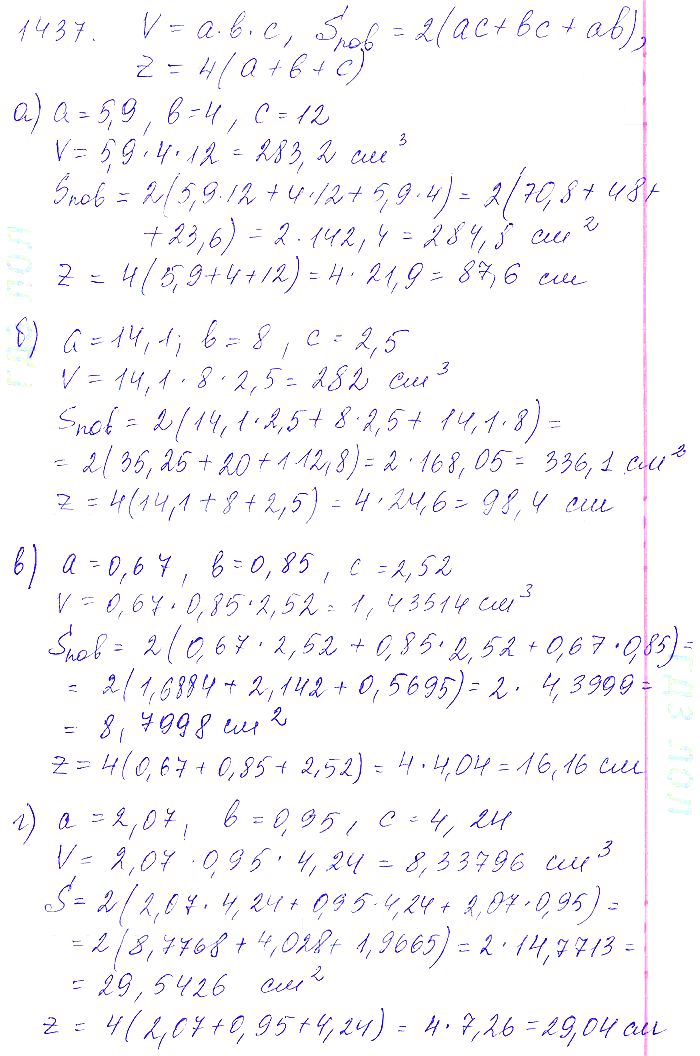 1437. V = a·b·c, Sпов = 2(ac+bc+ab),
z = 4(a+b+c)
а) a=5,9, b=4, c=12
V=5,9·4·12=283,2 см³
Sпов=2(5,9·12+4·12+5,9·4)=2(70,8+48+
+23,6)=2·142,4=284,8 см²
z = 4(5,9+4+12)=4·21,9=87,6 см
б) a=14,1; b=8, c=2,5
V=14,1·8·2,5=282 см³
Sпов=2(14,1·2,5+8·2,5+14,1·8)=
=2(35,25+20+112,8)=2·168,05=336,1 см²
z=4(14,1+8+2,5)=4·24,6=98,4 см
в) a=0,67, b=0,85, c=2,52
V=0,67·0,85·2,52=1,43514 см³
Sпов=2(0,67·2,52+0,85·2,52+0,67·0,85)=
=2(1,6884+2,142+0,5695)=2·4,3999=
=8,7998 см²
z=4(0,67+0,85+2,52)=4·4,04=16,16 см
г) a=2,07, b=0,95, c=4,24
V=2,07·0,95·4,24=8,33796 см³
S=2(2,07·4,24+0,95·4,24+2,07·0,95)=
=2(8,7768+4,028+1,9665)=2·14,7713=
=29,5426 см²
z=4(2,07+0,95+4,24)=4·7,26=29,04 см